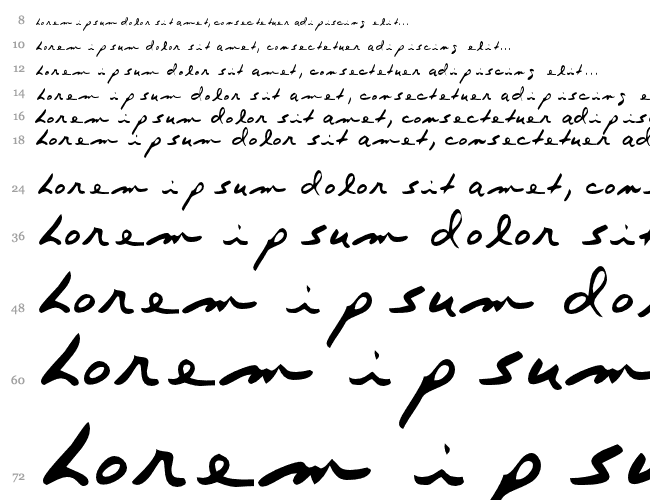 8 Lorem ipsum dolor sit amet, consectetuer adipiscing elit...
10 Lorem ipsum dolor sit amet, consectetuer adipiscing elit...
12 Lorem ipsum dolor sit amet, consectetuer adipiscing elit...
14 Lorem ipsum dolor sit amet, consectetuer adipiscing e
16 Lorem ipsum dolor sit amet, consectetuer adipisc
18 Lorem ipsum dolor sit amet, consectetuer ad
24 Lorem ipsum dolor sit amet, con
36 Lorem ipsum dolor sit
48 Lorem ipsum do
60 Lorem ipsum
72 Lorem ipsu